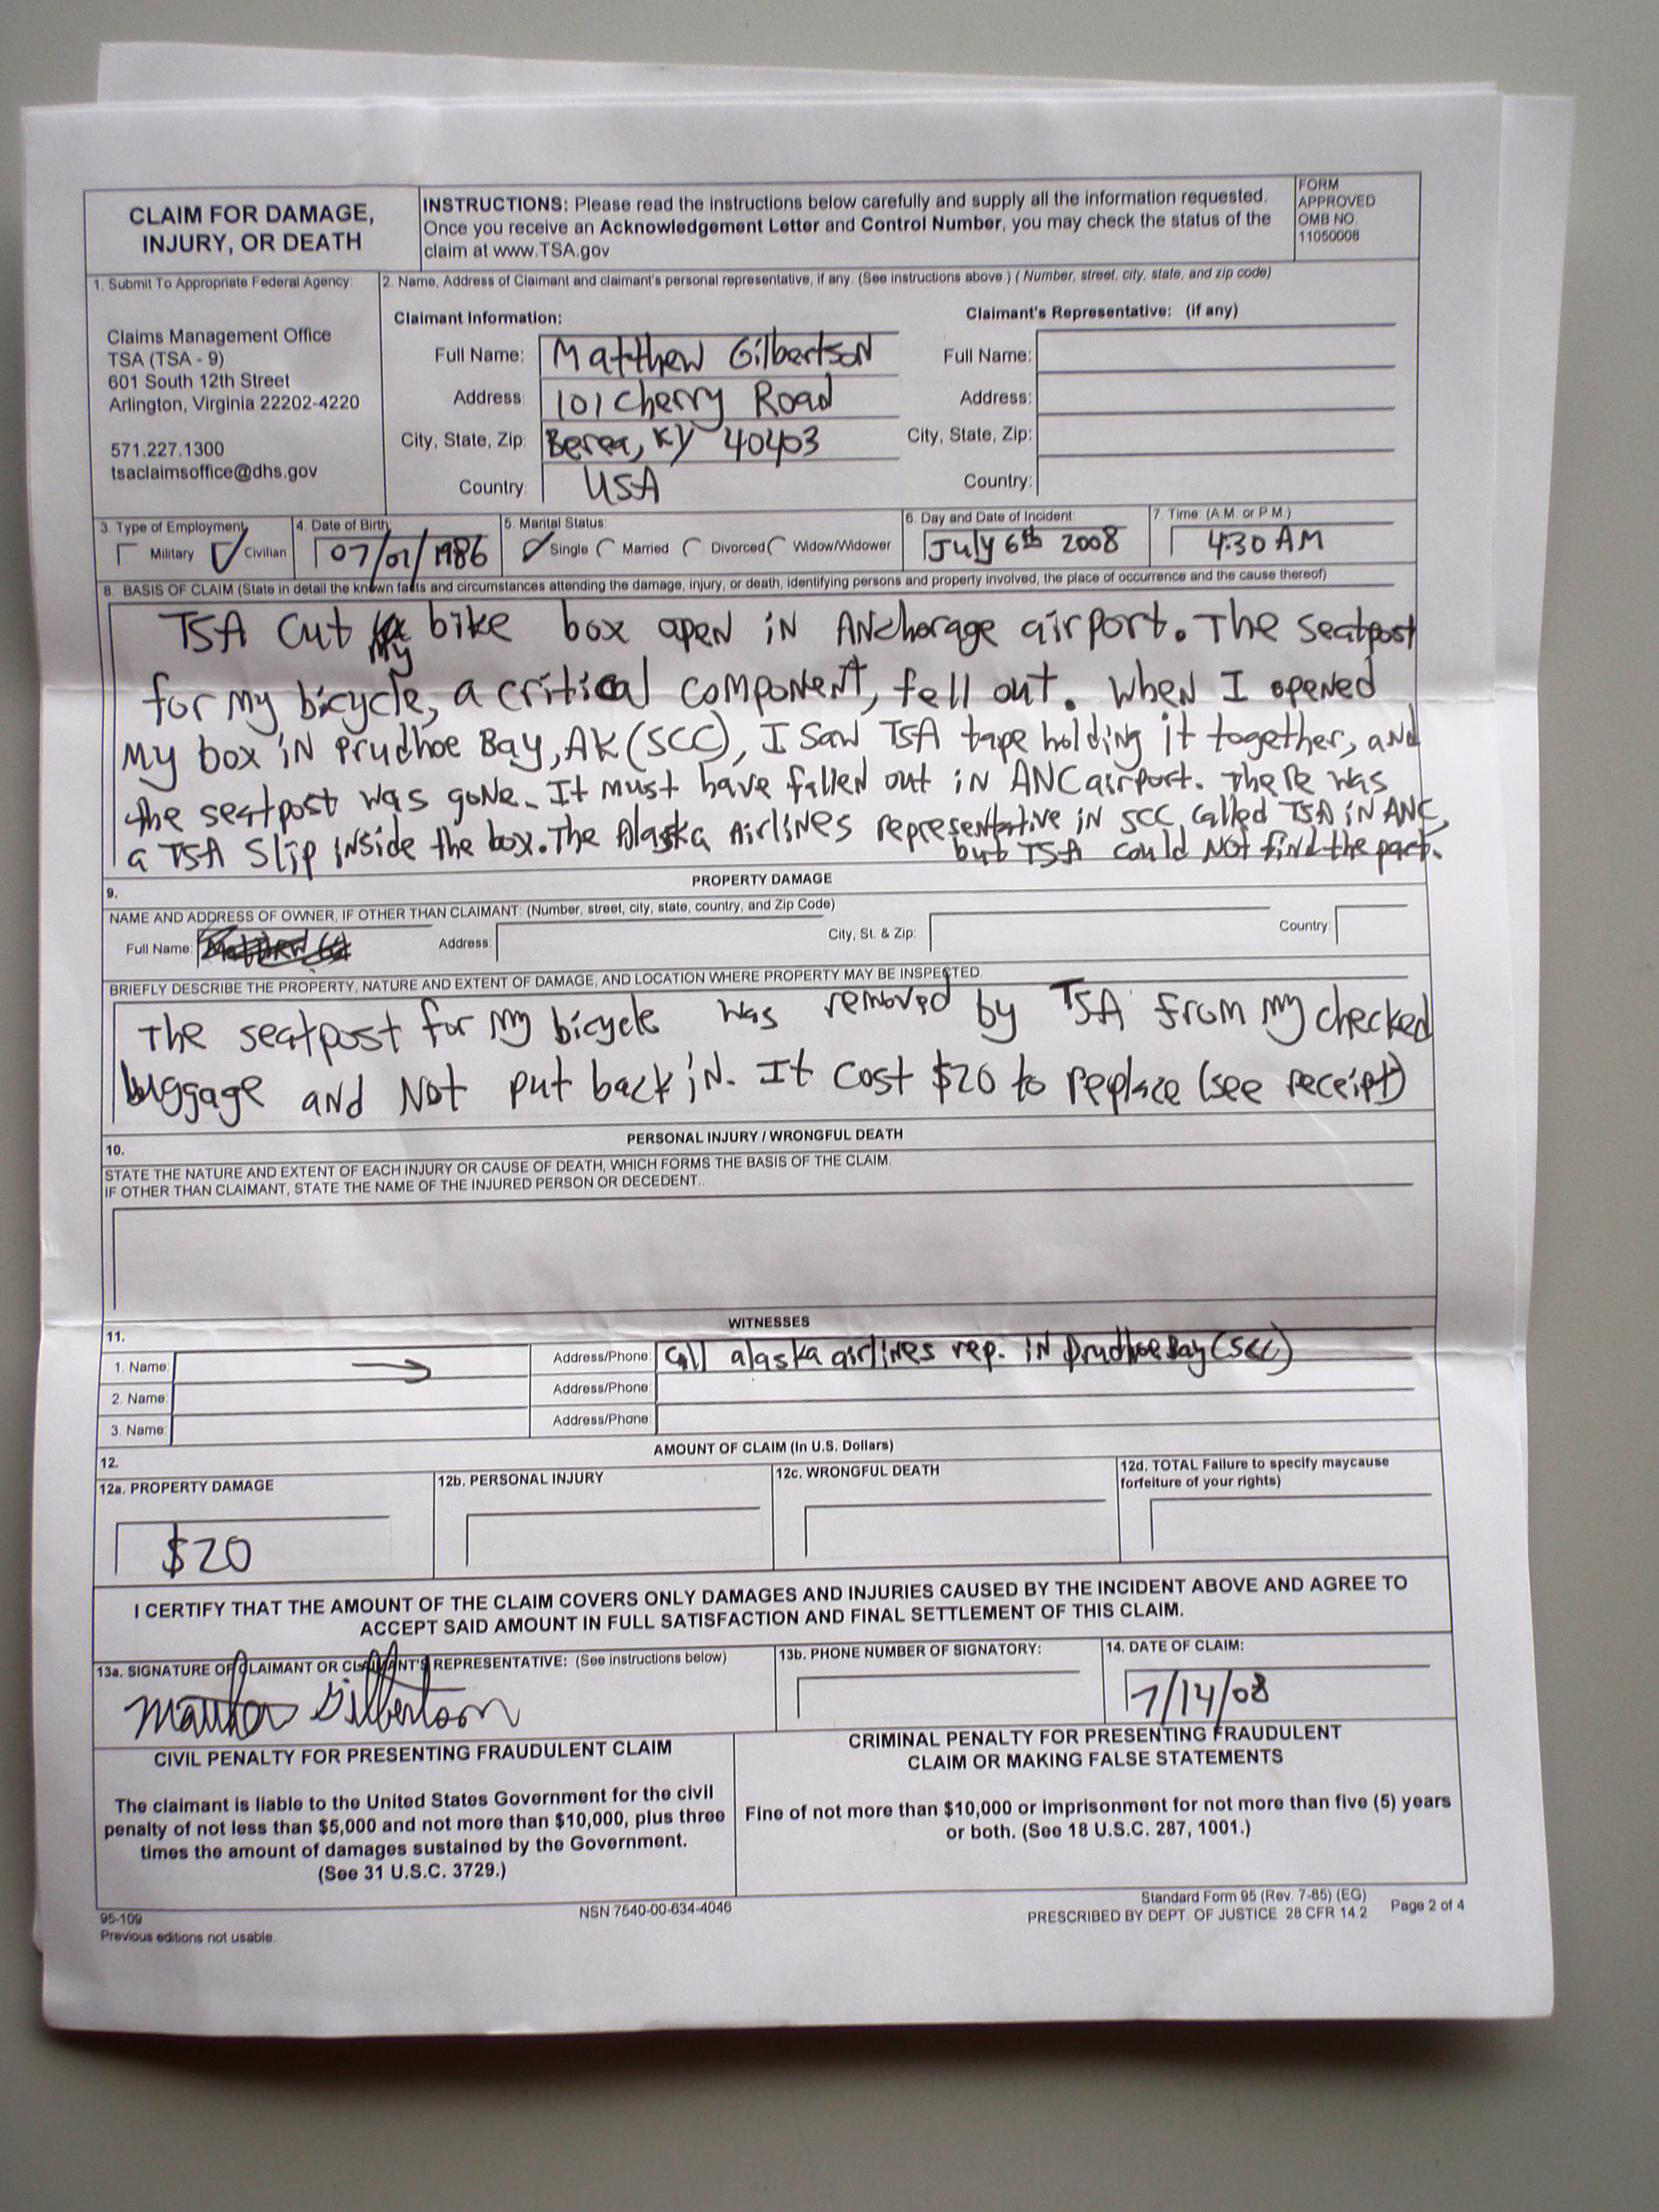 CLAIM FOR DAMAGE,
INJURY, OR DEATH
INSTRUCTIONS: Please read the instructions below carefully and supply all the information requested.
Once you receive an Acknowledgement Letter and Control Number, you may check the status of the
claim at www.TSA.gov
FORM
APPROVED
OMB NO.
11050008
1. Submit To Appropriate Federal Agency:
Claims Management Office
TSA (TSA - 9)
601 South 12th Street
Arlington, Virginia 22202-4220
571.227.1300
tsaclaimsoffice@dhs.gov
2. Name, Address of Claimant and claimant's personal representative, if any. (See instructions above.) ( Number, street, city, state, and zip code)
Claimant Information:
Full Name: Matthew Gilbertson
Address: 101 Cherry Road
City, State, Zip: Berea, KY 40403
Country: USA
Claimant's Representative: (if any)
Full Name:
Address:
City, State, Zip:
Country:
3. Type of Employment
Military Civilian
4. Date of Birth:
07/01/1986
5. Marital Status:
Single Married Divorced Widow/Widower
6. Day and Date of Incident:
July 6th 2008
7. Time: (A.M. or P.M.)
4:30 AM
8. BASIS OF CLAIM (State in detail the known facts and circumstances attending the damage, injury, or death, identifying persons and property involved, the place of occurrence and the cause thereof)
TSA cut my bike box open in Anchorage airport. The seatpost
for my bicycle, a critical component, fell out. When I opened
my box in Prudhoe Bay, AK (SCC), I saw TSA tape holding it together, and
the seatpost was gone. It must have falled out in ANC airport. There was
a TSA slip inside the box. The Alaska Airlines representative in SCC called TSA in ANC,
but TSA could not find the part.
9.
PROPERTY DAMAGE
NAME AND ADDRESS OF OWNER, IF OTHER THAN CLAIMANT: (Number, street, city, state, country, and Zip Code)
Full Name: Address: City, St. & Zip: Country:
BRIEFLY DESCRIBE THE PROPERTY, NATURE AND EXTENT OF DAMAGE, AND LOCATION WHERE PROPERTY MAY BE INSPECTED.
The seatpost for my bicycle was removed by TSA from my checked
luggage and not put back in. It cost $20 to replace (see receipt)
10.
PERSONAL INJURY / WRONGFUL DEATH
STATE THE NATURE AND EXTENT OF EACH INJURY OR CAUSE OF DEATH, WHICH FORMS THE BASIS OF THE CLAIM.
IF OTHER THAN CLAIMANT, STATE THE NAME OF THE INJURED PERSON OR DECEDENT..
11.
WITNESSES
1. Name: Address/Phone: Call alaska airlines rep. in Prudhoe Bay (SCC)
2. Name: Address/Phone:
3. Name: Address/Phone:
12.
AMOUNT OF CLAIM (In U.S. Dollars)
12a. PROPERTY DAMAGE
$20
12b. PERSONAL INJURY
12c. WRONGFUL DEATH
12d. TOTAL Failure to specify maycause
forfeiture of your rights)
I CERTIFY THAT THE AMOUNT OF THE CLAIM COVERS ONLY DAMAGES AND INJURIES CAUSED BY THE INCIDENT ABOVE AND AGREE TO
ACCEPT SAID AMOUNT IN FULL SATISFACTION AND FINAL SETTLEMENT OF THIS CLAIM.
13a. SIGNATURE OF CLAIMANT OR CLAIMANT'S REPRESENTATIVE: (See instructions below)
Matthew Gilbertson
13b. PHONE NUMBER OF SIGNATORY:
14. DATE OF CLAIM:
7/14/08
CIVIL PENALTY FOR PRESENTING FRAUDULENT CLAIM
The claimant is liable to the United States Government for the civil
penalty of not less than $5,000 and not more than $10,000, plus three
times the amount of damages sustained by the Government.
(See 31 U.S.C. 3729.)
CRIMINAL PENALTY FOR PRESENTING FRAUDULENT
CLAIM OR MAKING FALSE STATEMENTS
Fine of not more than $10,000 or imprisonment for not more than five (5) years
or both. (See 18 U.S.C. 287, 1001.)
95-109
Previous editions not usable.
NSN 7540-00-634-4046
Standard Form 95 (Rev. 7-85) (EG)
PRESCRIBED BY DEPT. OF JUSTICE 28 CFR 14.2
Page 2 of 4